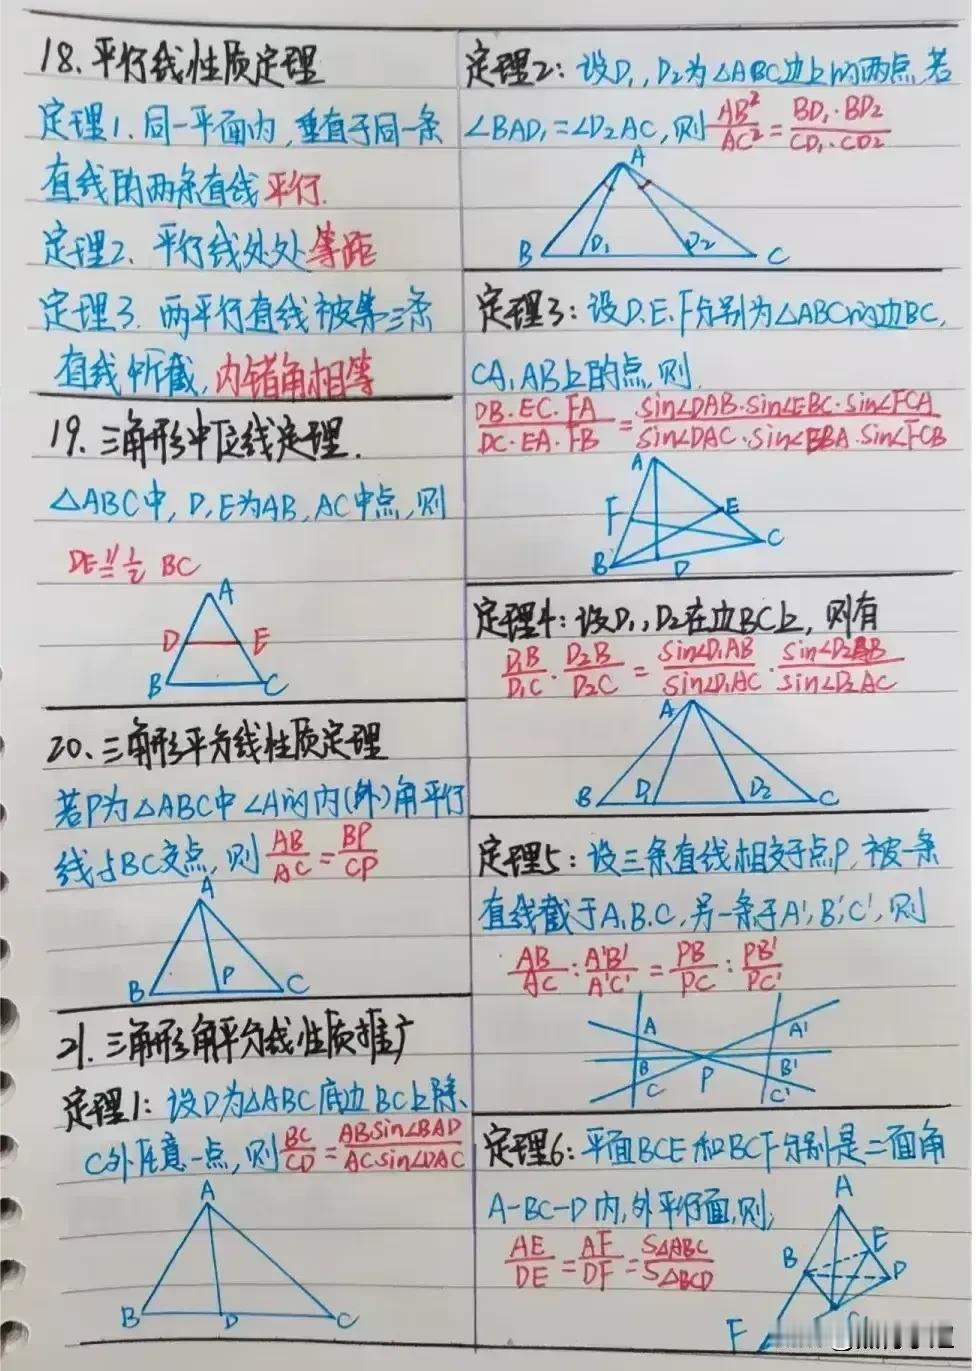 18.平行线性质定理
定理1.同一平面内,垂直于同一条
直线的两条直线平行.
定理2.平行线处处等距
定理3.两平行直线被第三条
直线所截,内错角相等
19.三角形中位线定理.
△ABC中,D,E为AB,AC中点,则
DE∥= 1/2 BC
A
D E
B C
20.三角形平分线性质定理
若P为△ABC中∠A的内(外)角平行
线与BC交点,则 AB/AC = BP/CP
A
B P C
21.三角形角平分线性质推广
定理1:设D为△ABC底边BC上除、
C外任意一点,则 BC/CD = ABsin∠BAD/ACsin∠DAC
A
B D C
定理2:设D₁,D₂为△ABC边上的两点,若
∠BAD₁=∠D₂AC,则 AB²/AC² = BD₁·BD₂/CD₁·CD₂
A
B D₁ D₂ C
定理3:设D.E.F分别为△ABC的边BC,
CA,AB上的点,则,
DB·EC·FA/DC·EA·FB = sin∠DAB·sin∠EBC·sin∠FCA/sin∠DAC·sin∠EBA·sin∠FCB
A
F E
B D C
定理4:设D₁,D₂在边BC上,则有
D₁B/D₁C · D₂B/D₂C = sin∠D₁AB/sin∠D₁AC · sin∠D₂AB/sin∠D₂AC
A
B D₁ D₂ C
定理5:设三条直线相交于点P,被一条
直线截于A.B.C,另一条于A',B',C',则
AB/AC : A'B'/A'C' = PB/PC : PB'/PC'
A A'
B P B'
C C'
定理6:平面BCE和BCF分别是二面角
A-BC-D内,外平行面,则;
AE/DE = AF/DF = S△ABC/S△BCD
A
B E
D
F